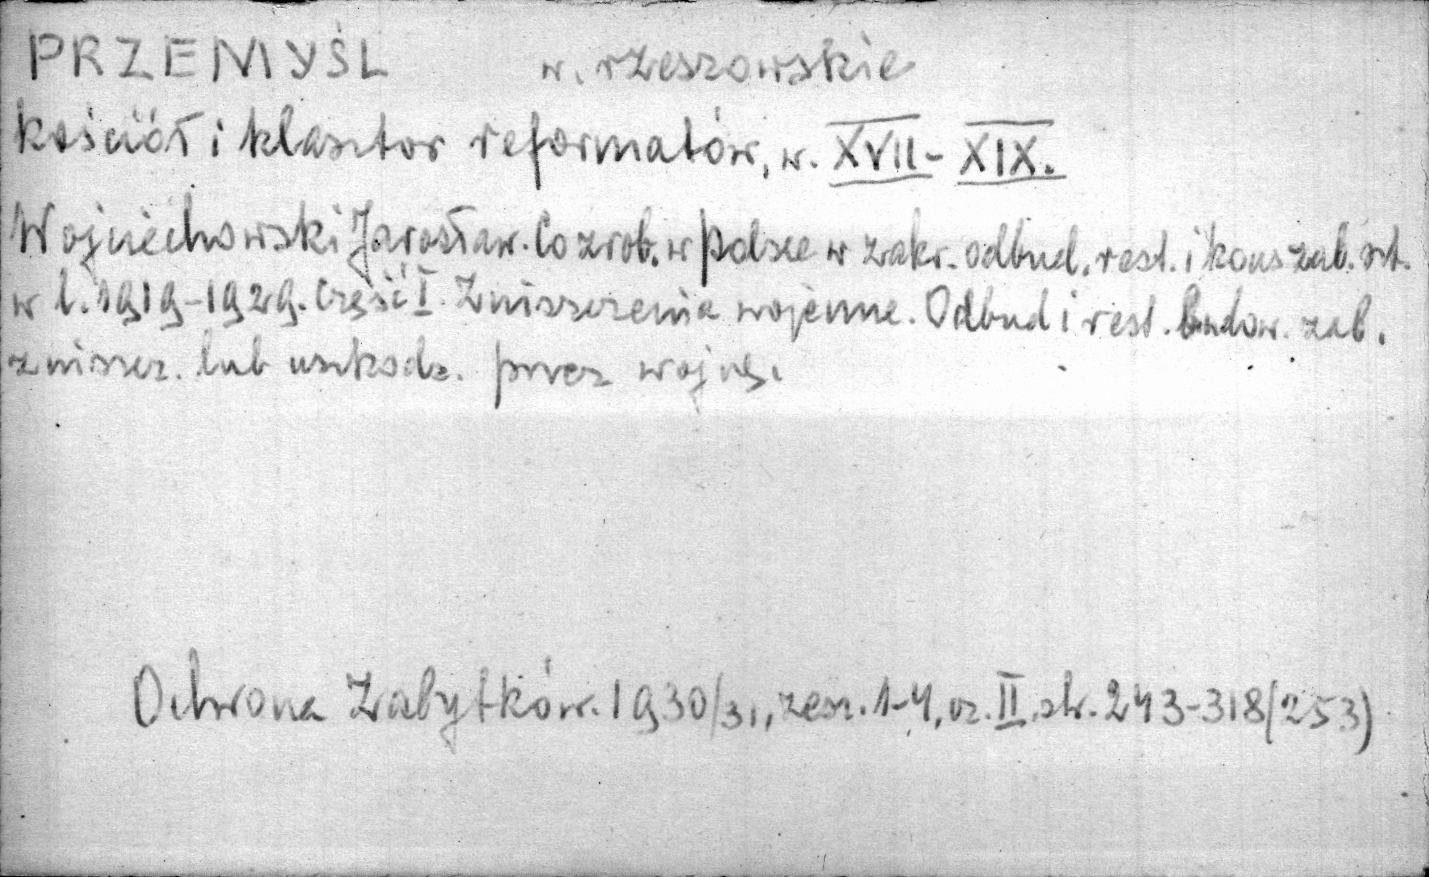 PRZEMYŚL w. rzeszowskie
kościół i klasztor reformatów, w. XVII- XIX.
Wojciechowski Jarosław. Co zrob. w Polsce w zakr. odbud. rest. i kons zab. szt.
w l. 1919-1929. Część I. Zniszczenia wojenne. Odbud i rest. budow. zab.
zniszcz. lub uszkodz. przez wojnę.
Ochrona Zabytków. 1930/31, zesz. 1-4, cz. II, str. 243-318 (253)